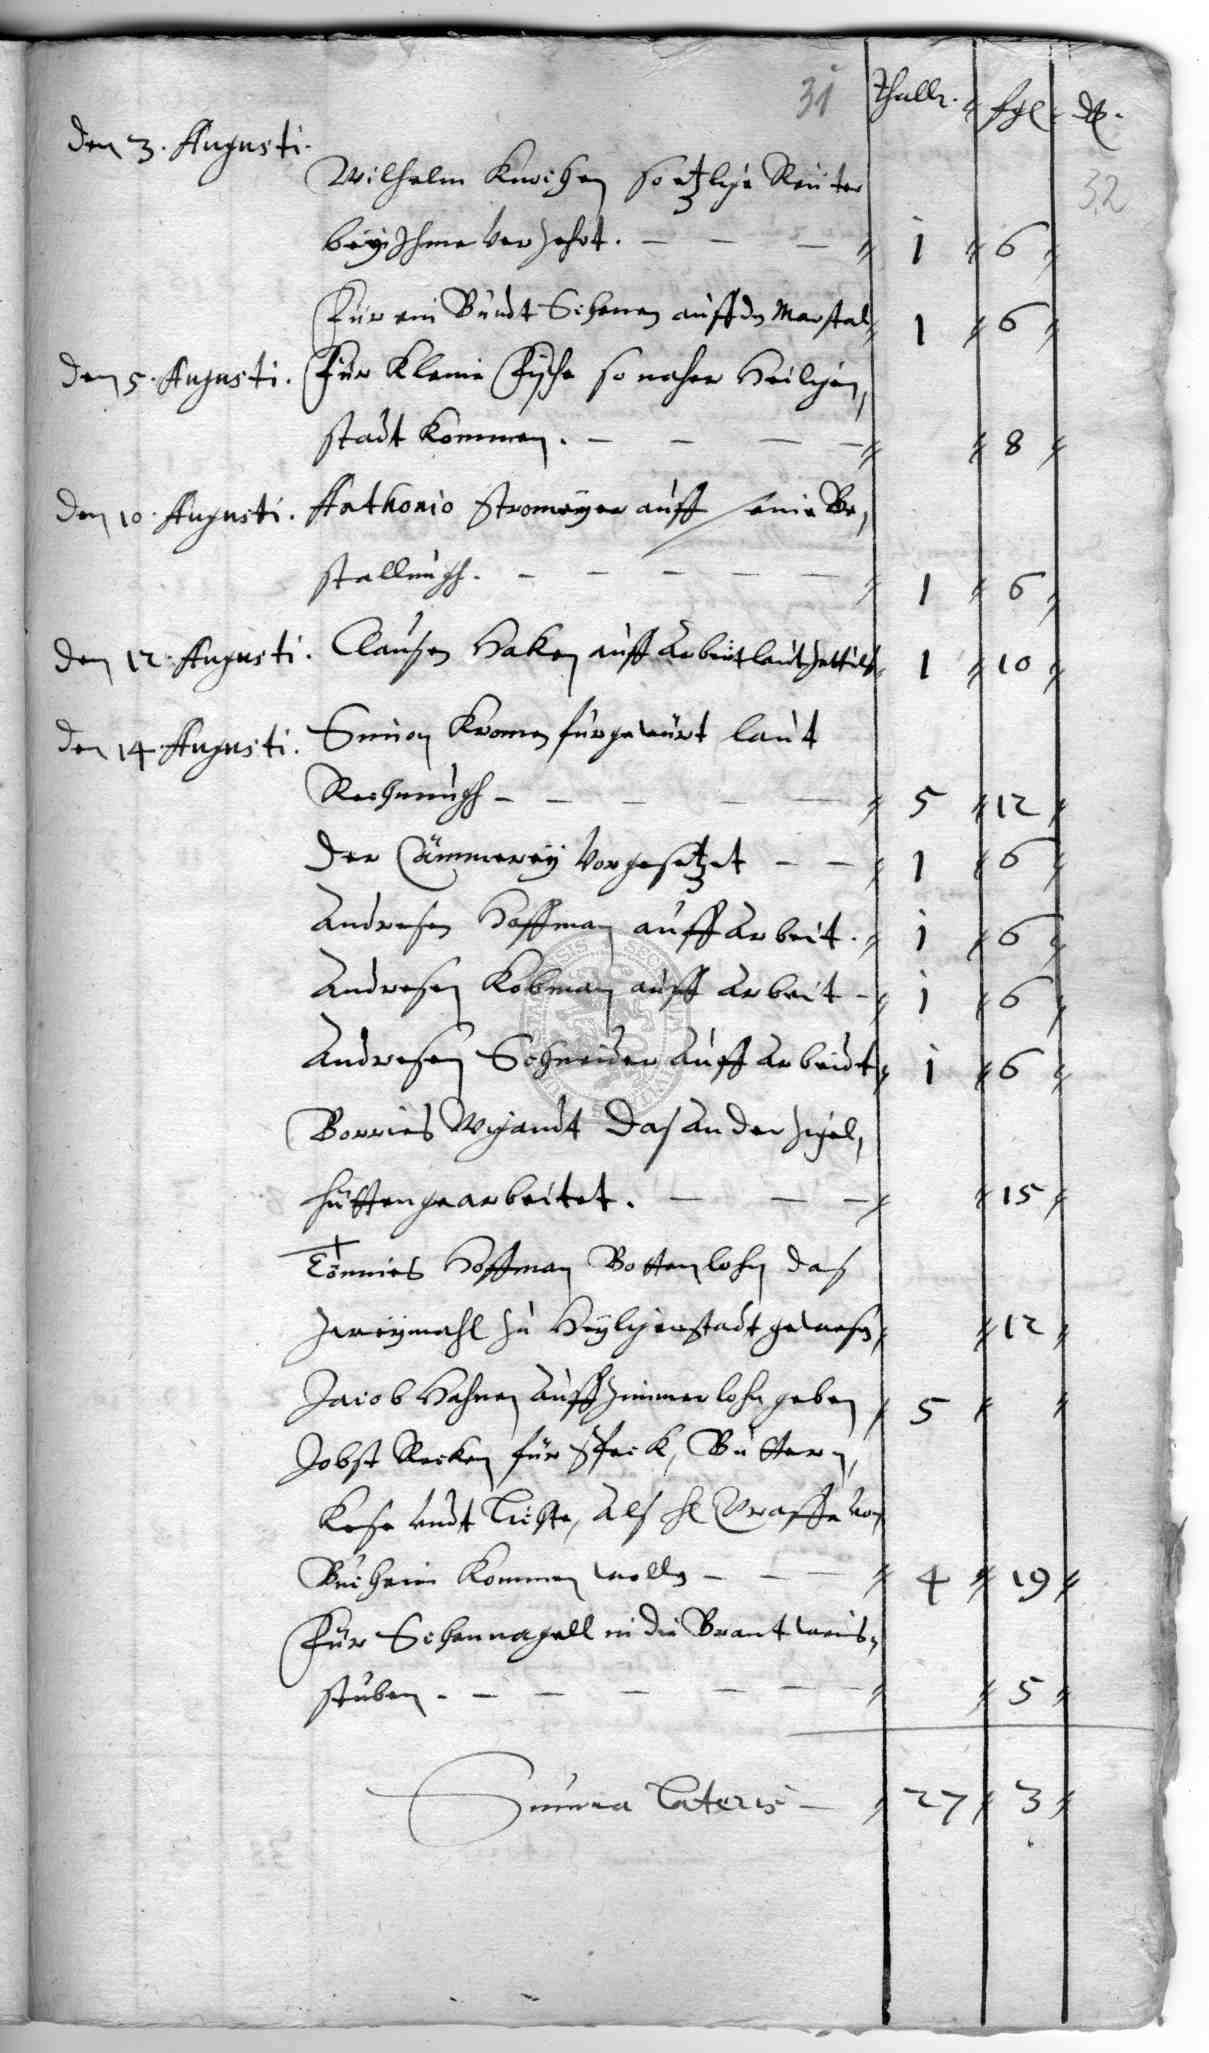 31 Thall. fgl ₰.
32
den 3. Augusti.
Wilhelm Knochen so etzliche Reuter
bey Ihme verzehrt. — — — 1 6
Für ein Bundt Schenen auff dn Marstal 1 6
den 5. Augusti. Für Kleine Fische so naher Heiligen,
stadt kommen. — — — — 8
den 10. Augusti. Anthonio Stromeyer auff seine Be,
stallungh. — — — — — 1 6
den 12. Augusti. Clausen Haken auff Arbeit laut Zettuls 1 10
den 14 Augusti. Simon Kromen für gewürt laut
Rechnungh — — — — — 5 12
Der Cämmerey vorgesetzet — — 1 6
Andresen Hoffman auff Arbeit. 1 6
Andresen Kobman auff Arbeit — 1 6
Andresen Schneider auff Arbeidt 1 6
Borries Wigandt das an der Zigel,
hütten gearbeitet. — — — 15
Tönnies Hoffman Bottenlohn das
zweymahl zu Heyligenstadt gewesn 12
Jacob Hahnen auff Zimmerlohn geben 5
Jobst Recken für Speck, Buttern,
Kese undt Lichte, als hl Graffe von
Bucheim kommen wolln — — — 4 19
Für Schennagell in die Brantweins,
stuben. — — — — — — 5
Summa Lateris — 27 3